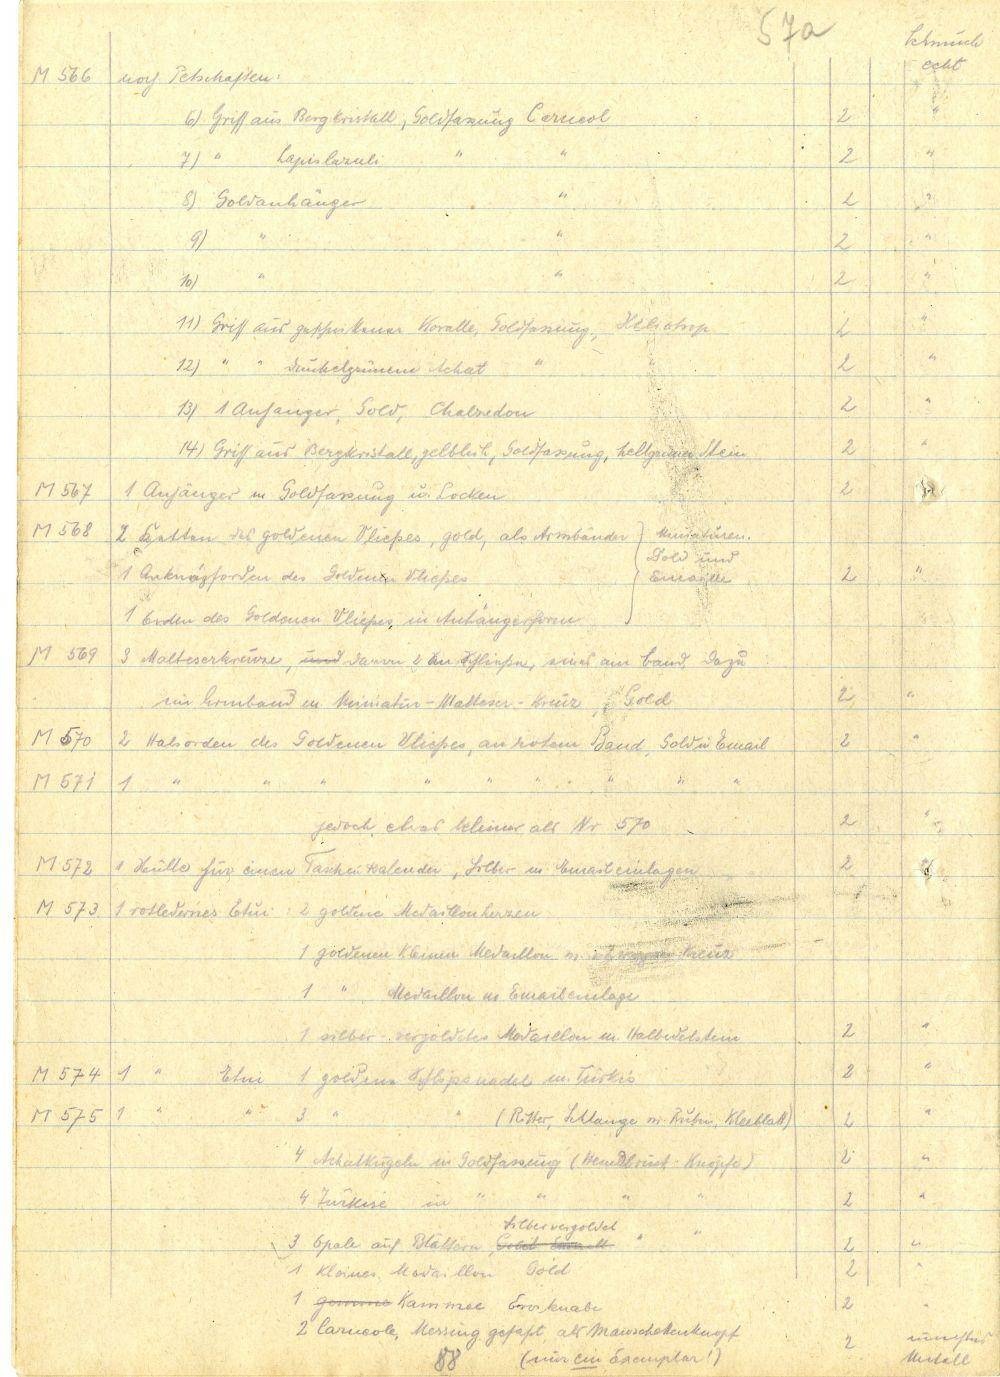 57a
Schmuck
echt
M 566 noch Petschaften:
6) Griff aus Bergkristall, Goldfassung Carneol 2 "
7) " Lapislazuli " " 2 "
8) Goldanhänger " 2 "
9) " " 2 "
10) " " 2 "
11) Griff aus geschnittener Koralle, Goldfassung, Heliotrop 2 "
12) " " dunkelgrünem Achat " 2 "
13) 1 Anhänger, Gold, Chalzedon 2 "
14) Griff aus Bergkristall, gelblich, Goldfassung, hellgrüner Stein 2 "
M 567 1 Anhänger in Goldfassung u. Locken 2
M 568 2 Ketten des goldenen Vließes, gold, als Armbänder } Miniaturen.
Gold und
1 des Goldenen Vließes Emaille 2 "
1 Orden des Goldenen Vließes, in Anhängerform
M 569 3 Malteserkreuze, und davon 2 an Schleife, eines am Band, dazu
ein Armband m Miniatur-Malteser-Kreuz, Gold 2 "
M 570 2 Halsorden des Goldenen Vließes, an rotem Band, Gold u Email 2 "
M 571 1 " " " " " " " " "
jedoch etwas kleiner als Nr 570 2 "
M 572 1 Hülle für einen Taschenkalender, Silber m Emaileinlagen 2 "
M 573 1 rotledernes Etui: 2 goldene Medaillonherzen
1 goldenen kleinen Medaillon m. Kreuz
1 " Medaillon m Emaileinlage
1 silber-vergoldetes Medaillon m. Halbedelstein 2 "
M 574 1 " Etui 1 goldene Schlipsnadel m. Türkis 2 "
M 575 1 " " 3 " " (Ritter, Schlange m. Rubin, Kleeblatt) 2 "
4 Achatkugeln in Goldfassung (Hemdbrust-Knöpfe) 2 "
4 Türkise in " " " " 2 "
Silbervergoldet
3 Opale auf Blättern, Gold Email " " 2 "
1 kleines Medaillon Gold 2 "
1 gemme Kammee Erosknabe 2 "
2 Carneole, Messing gefaßt als Manschettenknopf 2 unechtes
88 (nur ein Exemplar!) Metall